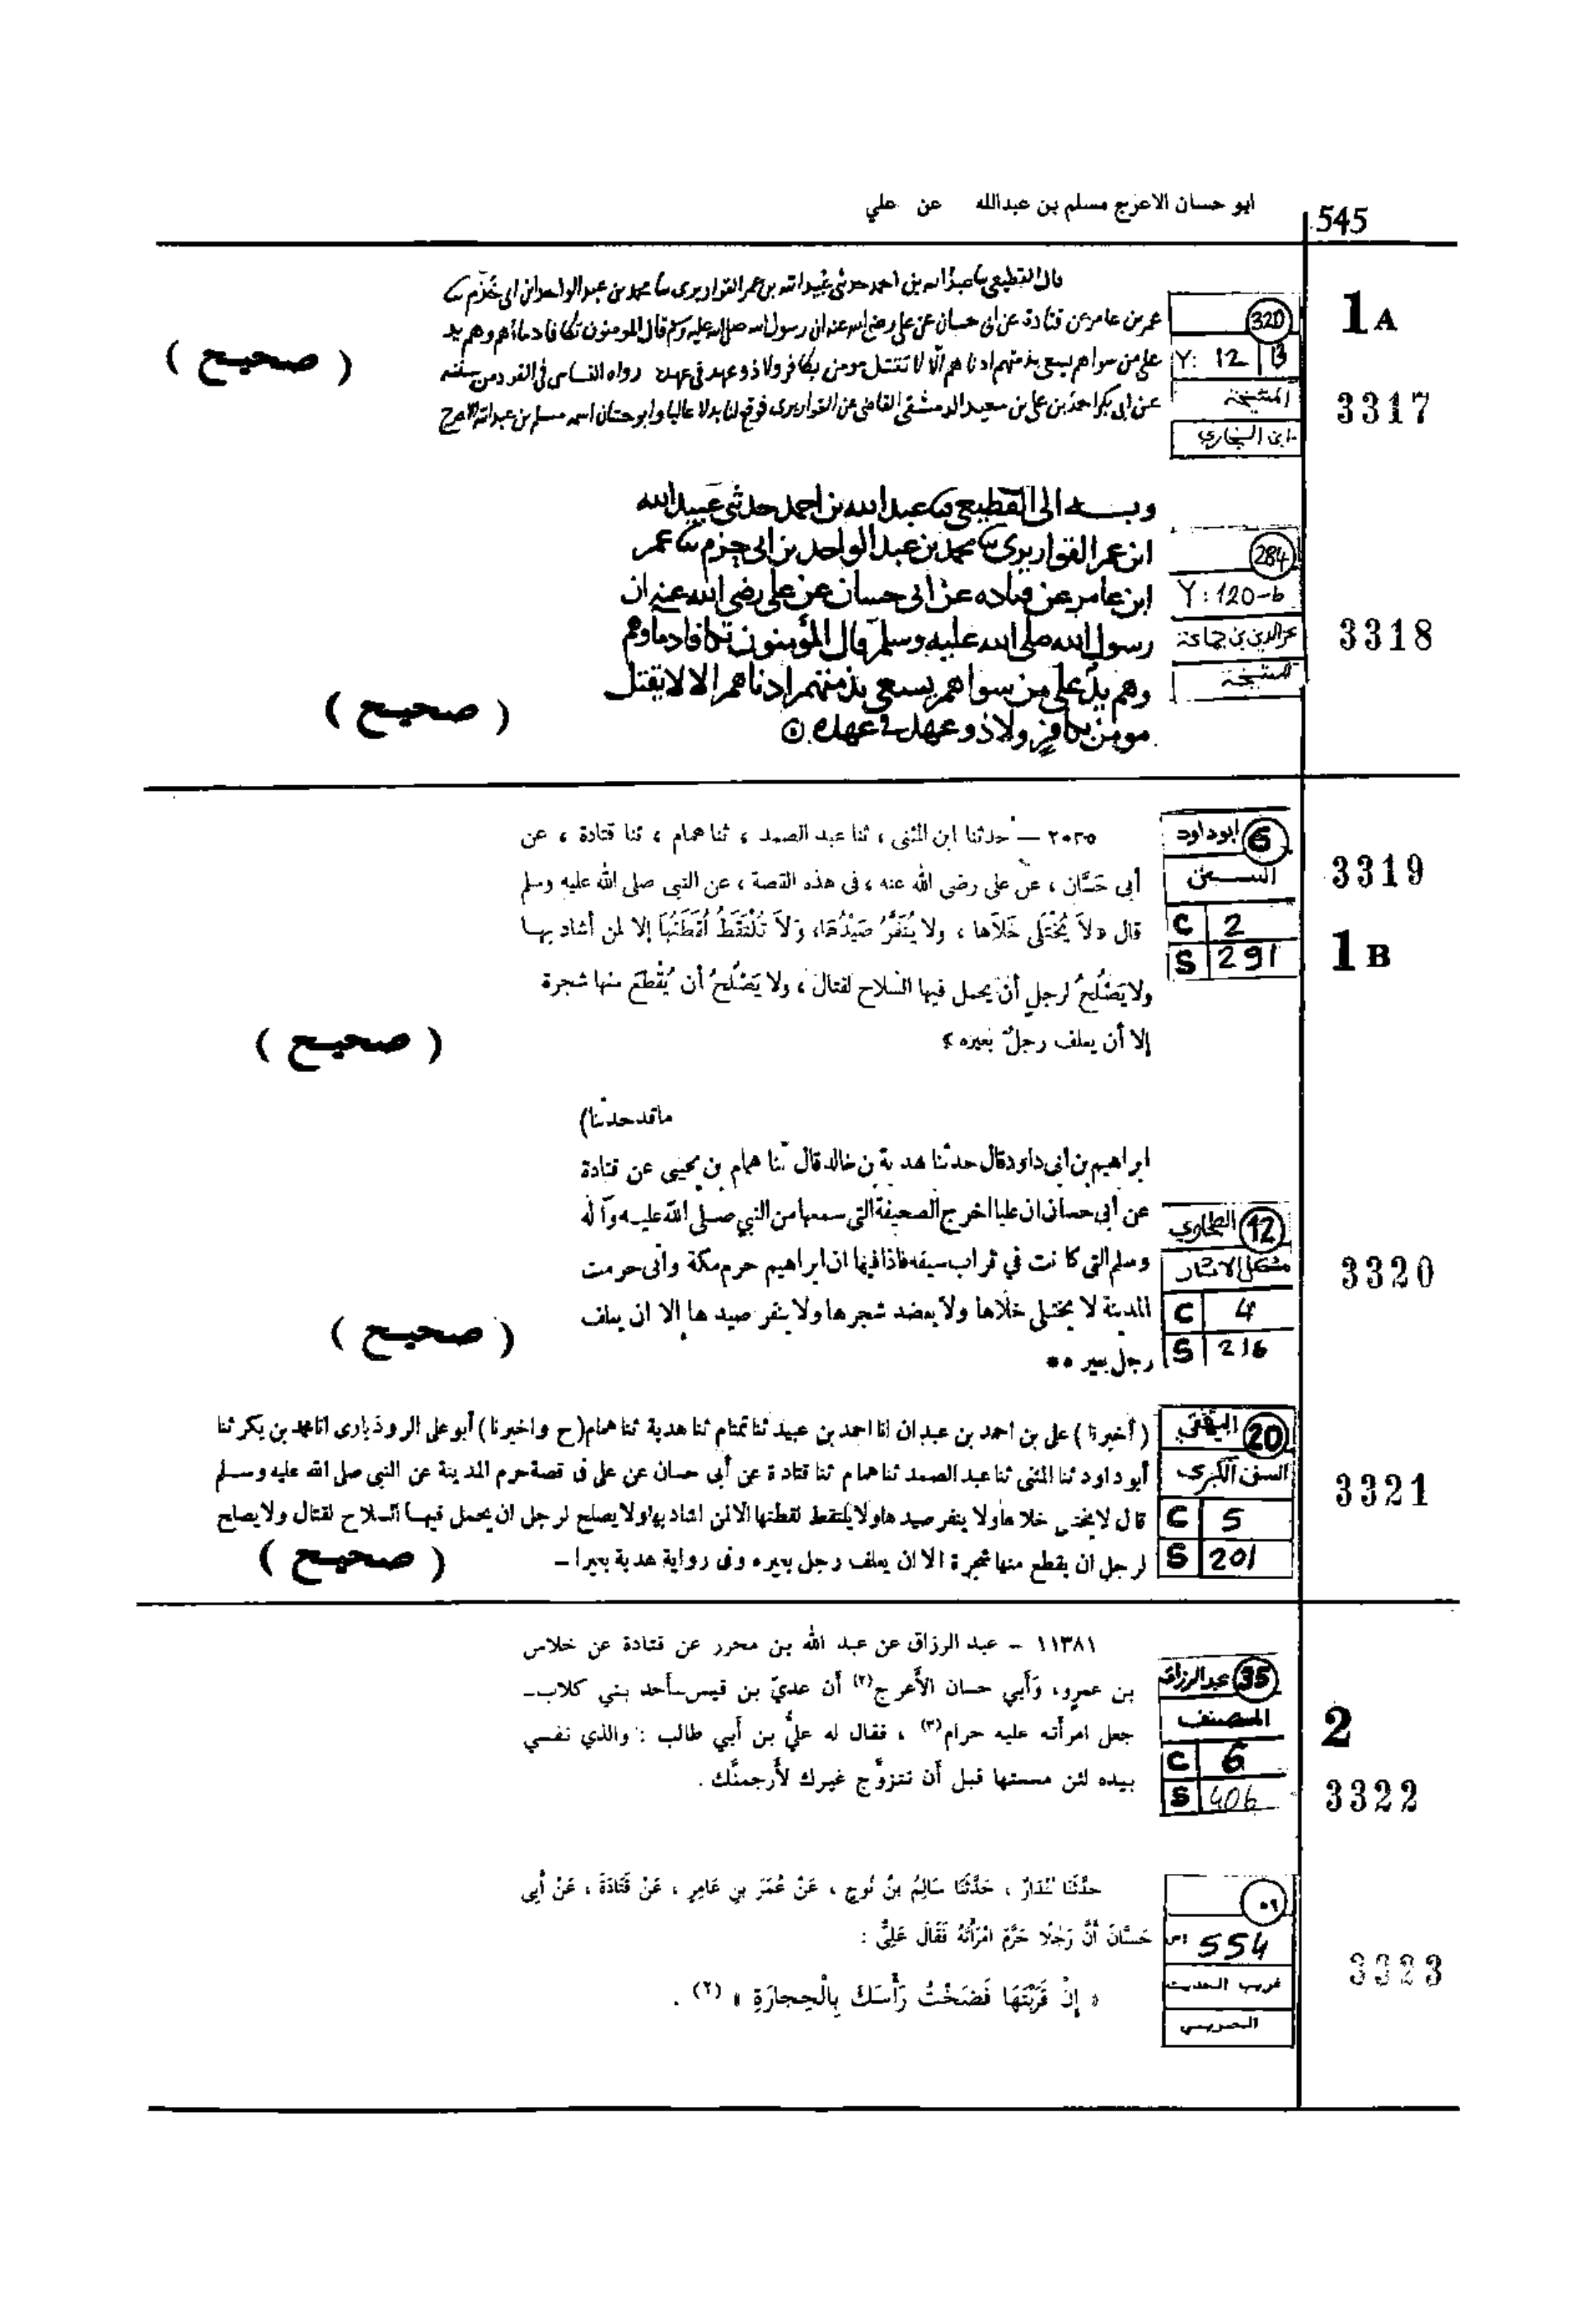 ابو حسان الاعرج مسلم بن عبدالله عن علي
545
1A
320
قال القطيعي ثنا عبد الله بن احمد حدثني عبيد الله بن عمر القواريري ثنا محمد بن عبد الواحد ابن ابي حزم ثنا
عمر بن عامر عن قتادة عن ابي حسان عن علي رضي الله عنه ان رسول الله صلى الله عليه وسلم قال المومنون تكافا دماؤهم وهم يد
على من سواهم يسعى بذمتهم ادناهم الا لا تقتل مومن بكافر ولا ذو عهد في عهده رواه النساى في القود من سننه
عن ابي بكر احمد بن علي بن سعيد الدمشقي القاضي عن القواريري فوقع لنا بدلا عاليا وابو حسان اسمه مسلم بن عبد الله الاعرج
( صحيح )
Y: 12 B
المشيخة
ابن البخاري
3317
وبه الى القطيعي ثنا عبد الله بن احمد حدثني عبيد الله
ابن عمر القواريري ثنا محمد بن عبد الواحد بن ابي حزم ثنا عمر
ابن عامر عن قتاده عن ابي حسان عن علي رضي الله عنه ان
رسول الله صلى الله عليه وسلم قال المؤمنون تكافا دماوهم
وهم يد على من سواهم يسعى بذمتهم ادناهم الا لا يقتل
مومن بكافر ولا ذو عهد في عهده
( صحيح )
284
Y: 120-b
عز الدين بن جماعة
المشيخة
3318
٢٠٣٥ — حدثنا ابن المثنى ، ثنا عبد الصمد ، ثنا همام ، ثنا قتادة ، عن
أبى حَسَّان ، عن على رضى الله عنه ، فى هذه القصة ، عن النبى صلى الله عليه وسلم
قال « لاَ يُخْتَلَى خَلاَهَا ، ولا يُنَفَّرُ صَيْدُهَا، وَلاَ تُلْتَقَطُ لُقَطَتُهَا إلا لمن أشاد بها
ولا يَصْلُحُ لرجل أن يحمل فيها السلاح لقتال ، ولا يَصْلُحُ أن يُقْطَعَ منها شجرة
إلا أن يعلف رجلٌ بعيره »
( صحيح )
6 ابوداود
السنن
C 2
S 291
3319
1B
ماقد حدثنا)
ابراهيم بن ابى داود قال حدثنا هدبة بن خالد قال ثنا همام بن يحيى عن قتادة
عن أبى حسان ان عليا اخرج الصحيفة التى سمعها من النبي صلى الله عليه وآله
وسلم التى كانت في قراب سيفه فاذا فيها ان ابراهيم حرم مكة وانى حرمت
المدينة لا يختلى خلاها ولا يعضد شجرها ولا ينفر صيدها إلا ان يعلف
رجل بعير **
( صحيح )
12 الطحاوي
مشكل الاثار
C 4
S 216
3320
( أخبرنا ) على بن احمد بن عبدان انا احمد بن عبيد ثنا تمتام ثنا هدبة ثنا همام (ح واخبرنا) أبو على الروذبارى انا محمد بن بكر ثنا
أبو داود ثنا المثنى ثنا عبد الصمد ثنا همام ثنا قتادة عن أبى حسان عن على فى قصة حرم المدينة عن النبى صلى الله عليه وسلم
قال لا يختلى خلاها ولا ينفر صيدها ولا يلتقط لقطتها الا لمن اشاد بها ولا يصلح لرجل ان يحمل فيها السلاح لقتال ولا يصلح
لرجل ان يقطع منها شجرة الا ان يعلف رجل بعيره وفى رواية هدبة بعيرا –
( صحيح )
20 البيهقي
السنن الكبرى
C 5
S 201
3321
١١٣٨١ – عبد الرزاق عن عبد الله بن محرر عن قتادة عن خلاس
بن عمرو، وَأبي حسان الأَعرج(٢) أن عديّ بن قيس–أحد بني كلاب–
جعل امرأته عليه حرام(٣) ، فقال له عليُّ بن أبي طالب : والذي نفسي
بيده لئن مسستها قبل أن تتزوَّج غيرك لأَرجمنَّك .
35 عبد الرزاق
المصنف
C 6
S 406
2
3322
حدَّثَنَا بُنْدَارٌ ، حَدَّثَنَا سَالِمُ بنُ نُوحٍ ، عَنْ عُمَرَ بنِ عَامِرٍ ، عَنْ قَتَادَةَ ، عَنْ أَبِى
حَسَّانَ أَنَّ رَجُلًا حَرَّمَ امْرَأَتَهُ فَقَالَ عَلِىٌّ :
« إنْ قَرِبْتَهَا فَضَخْتُ رَأْسَكَ بِالْحِجارَةِ » (٢) .
٥٩
ص 554
غريب الحديث
الحربي
3323